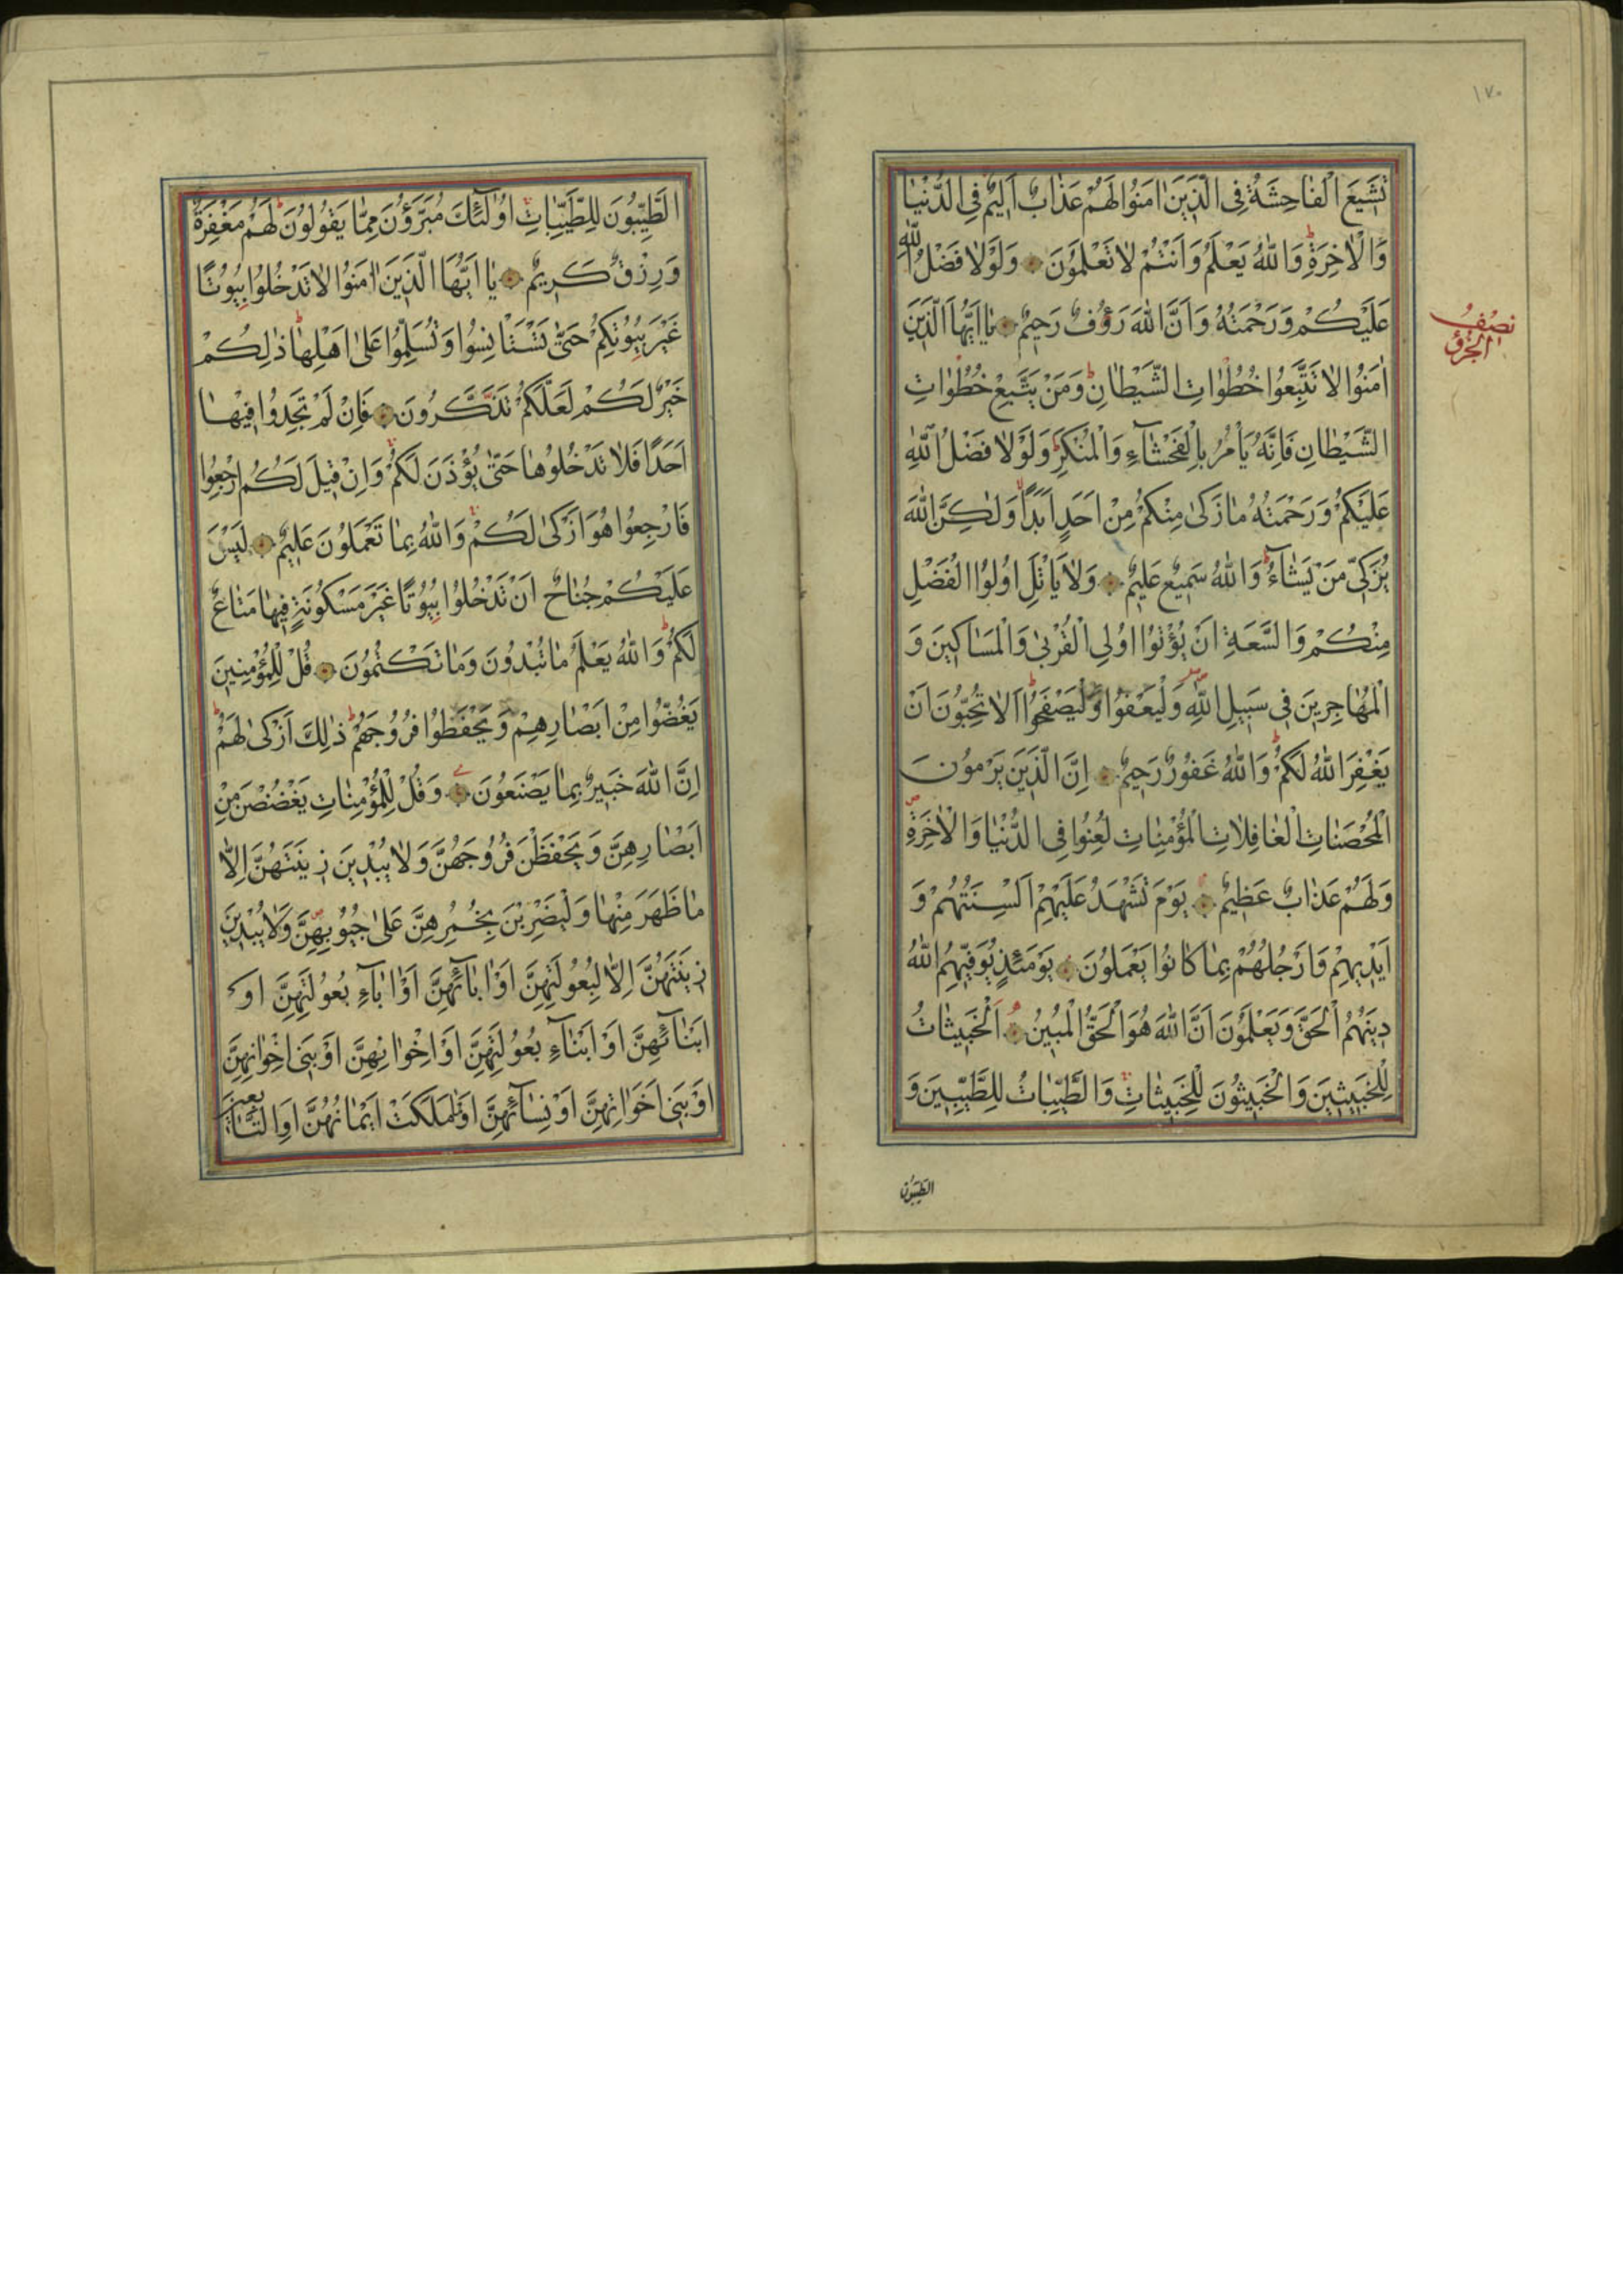 ١٧٠
تَشٖيعَ الْفَاحِشَةُ فِى الَّذٖينَ اٰمَنُوا لَهُمْ عَذَابٌ اَلٖيمٌ فِى الدُّنْيَا
وَالْاٰخِرَةِ وَاللّٰهُ يَعْلَمُ وَاَنْتُمْ لَا تَعْلَمُونَ وَلَوْلَا فَضْلُ اللّٰهِ
عَلَيْكُمْ وَرَحْمَتُهُ وَاَنَّ اللّٰهَ رَؤُفٌ رَحٖيمٌ يَا اَيُّهَا الَّذٖينَ
نِصْفُ
الْجُزْؤِ
اٰمَنُوا لَا تَتَّبِعُوا خُطُوَاتِ الشَّيْطَانِ وَمَنْ يَتَّبِعْ خُطُوَاتِ
الشَّيْطَانِ فَاِنَّهُ يَاْمُرُ بِالْفَحْشَآءِ وَالْمُنْكَرِ وَلَوْلَا فَضْلُ اللّٰهِ
عَلَيْكُمْ وَرَحْمَتُهُ مَا زَكٰى مِنْكُمْ مِنْ اَحَدٍ اَبَدًا وَلٰكِنَّ اللّٰهَ
يُزَكّٖى مَنْ يَشَآءُ وَاللّٰهُ سَمٖيعٌ عَلٖيمٌ وَلَا يَاْتَلِ اُولُوا الْفَضْلِ
مِنْكُمْ وَالسَّعَةِ اَنْ يُؤْتُوا اُولِى الْقُرْبٰى وَالْمَسَاكٖينَ وَ
الْمُهَاجِرٖينَ فٖى سَبٖيلِ اللّٰهِ وَلْيَعْفُوا وَلْيَصْفَحُوا اَلَا تُحِبُّونَ اَنْ
يَغْفِرَ اللّٰهُ لَكُمْ وَاللّٰهُ غَفُورٌ رَحٖيمٌ اِنَّ الَّذٖينَ يَرْمُونَ
الْمُحْصَنَاتِ الْغَافِلَاتِ الْمُؤْمِنَاتِ لُعِنُوا فِى الدُّنْيَا وَالْاٰخِرَةِ
وَلَهُمْ عَذَابٌ عَظٖيمٌ يَوْمَ تَشْهَدُ عَلَيْهِمْ اَلْسِنَتُهُمْ وَ
اَيْدٖيهِمْ وَاَرْجُلُهُمْ بِمَا كَانُوا يَعْمَلُونَ يَوْمَئِذٍ يُوَفّٖيهِمُ اللّٰهُ
دٖينَهُمُ الْحَقَّ وَيَعْلَمُونَ اَنَّ اللّٰهَ هُوَ الْحَقُّ الْمُبٖينُ اَلْخَبٖيثَاتُ
لِلْخَبٖيثٖينَ وَالْخَبٖيثُونَ لِلْخَبٖيثَاتِ وَالطَّيِّبَاتُ لِلطَّيِّبٖينَ وَ
الطَّيِّبُونَ
الطَّيِّبُونَ لِلطَّيِّبَاتِ اُولٰٓئِكَ مُبَرَّؤُنَ مِمَّا يَقُولُونَ لَهُمْ مَغْفِرَةٌ
وَرِزْقٌ كَرٖيمٌ يَا اَيُّهَا الَّذٖينَ اٰمَنُوا لَا تَدْخُلُوا بُيُوتًا
غَيْرَ بُيُوتِكُمْ حَتّٰى تَسْتَاْنِسُوا وَتُسَلِّمُوا عَلٰى اَهْلِهَا ذٰلِكُمْ
خَيْرٌ لَكُمْ لَعَلَّكُمْ تَذَكَّرُونَ فَاِنْ لَمْ تَجِدُوا فٖيهَا
اَحَدًا فَلَا تَدْخُلُوهَا حَتّٰى يُؤْذَنَ لَكُمْ وَاِنْ قٖيلَ لَكُمُ ارْجِعُوا
فَارْجِعُوا هُوَ اَزْكٰى لَكُمْ وَاللّٰهُ بِمَا تَعْمَلُونَ عَلٖيمٌ لَيْسَ
عَلَيْكُمْ جُنَاحٌ اَنْ تَدْخُلُوا بُيُوتًا غَيْرَ مَسْكُونَةٍ فٖيهَا مَتَاعٌ
لَكُمْ وَاللّٰهُ يَعْلَمُ مَا تُبْدُونَ وَمَا تَكْتُمُونَ قُلْ لِلْمُؤْمِنٖينَ
يَغُضُّوا مِنْ اَبْصَارِهِمْ وَيَحْفَظُوا فُرُوجَهُمْ ذٰلِكَ اَزْكٰى لَهُمْ
اِنَّ اللّٰهَ خَبٖيرٌ بِمَا يَصْنَعُونَ وَقُلْ لِلْمُؤْمِنَاتِ يَغْضُضْنَ مِنْ
اَبْصَارِهِنَّ وَيَحْفَظْنَ فُرُوجَهُنَّ وَلَا يُبْدٖينَ زٖينَتَهُنَّ اِلَّا
مَا ظَهَرَ مِنْهَا وَلْيَضْرِبْنَ بِخُمُرِهِنَّ عَلٰى جُيُوبِهِنَّ وَلَا يُبْدٖينَ
زٖينَتَهُنَّ اِلَّا لِبُعُولَتِهِنَّ اَوْ اٰبَآئِهِنَّ اَوْ اٰبَآءِ بُعُولَتِهِنَّ اَوْ
اَبْنَآئِهِنَّ اَوْ اَبْنَآءِ بُعُولَتِهِنَّ اَوْ اِخْوَانِهِنَّ اَوْ بَنٖى اِخْوَانِهِنَّ
اَوْ بَنٖى اَخَوَاتِهِنَّ اَوْ نِسَآئِهِنَّ اَوْ مَا مَلَكَتْ اَيْمَانُهُنَّ اَوِ التَّابِعٖينَ